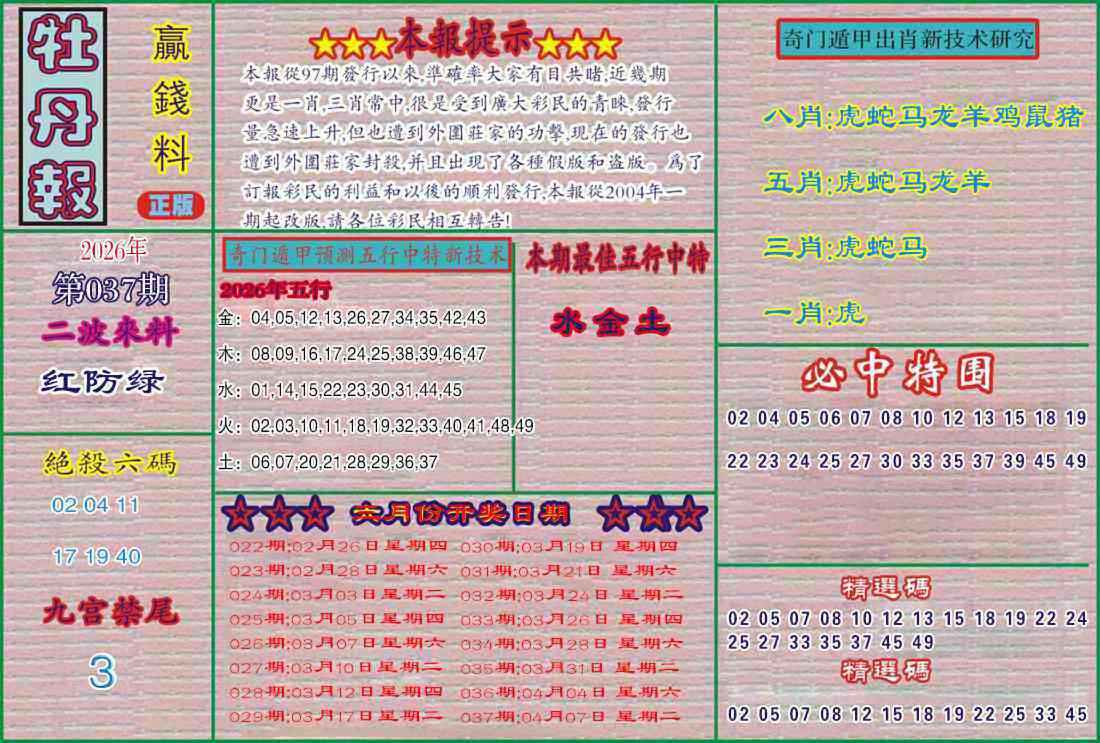 牡丹報
贏錢料
正版
★★★本報提示★★★
本報從97期發行以來,準確率大家有目共睹,近幾期
更是一肖,三肖常中,很是受到廣大彩民的青睞,發行
量急速上升,但也遭到外圍莊家的功擊,現在的發行也
遭到外圍莊家封殺,并且出現了各種假版和盜版。爲了
訂報彩民的利益和以後的順利發行,本報從2004年一
期起改版,請各位彩民相互轉告!
奇门遁甲出肖新技术研究
八肖:虎蛇马龙羊鸡鼠猪
五肖:虎蛇马龙羊
三肖:虎蛇马
一肖:虎
2026年
第037期
二波來料
红防绿
奇门遁甲预测五行中特新技术
2026年五行
金：04,05,12,13,26,27,34,35,42,43
木：08,09,16,17,24,25,38,39,46,47
水：01,14,15,22,23,30,31,44,45
火：02,03,10,11,18,19,32,33,40,41,48,49
土：06,07,20,21,28,29,36,37
本期最佳五行中特
水金土
必中特围
02 04 05 06 07 08 10 12 13 15 18 19
22 23 24 25 27 30 33 35 37 39 45 49
絕殺六碼
02 04 11
17 19 40
九宫禁尾
3
☆☆☆ 六月份开奖日期 ☆☆☆
022期:02月26日星期四 030期:03月19日 星期四
023期:02月28日星期六 031期:03月21日 星期六
024期:03月03日星期二 032期:03月24日 星期二
025期:03月05日星期四 033期:03月26日 星期四
026期:03月07日星期六 034期:03月28日 星期六
027期:03月10日星期二 035期:03月31日 星期二
028期:03月12日星期四 036期:04月04日 星期六
029期:03月17日星期二 037期:04月07日 星期二
精選碼
02 05 07 08 10 12 13 15 18 19 22 24
25 27 33 35 37 45 49
精選碼
02 05 07 08 12 15 18 19 22 25 33 45